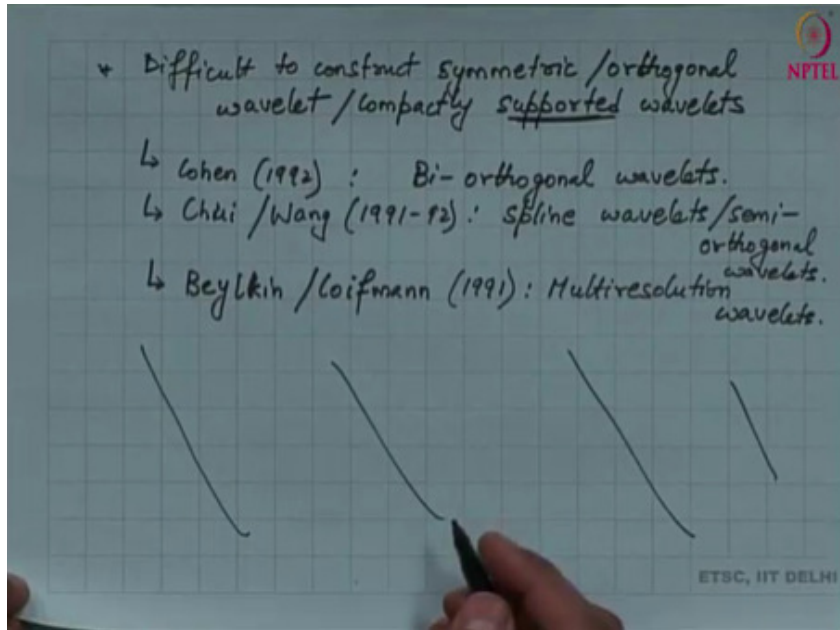 * Difficult to construct symmetric/orthogonal
wavelet/compactly supported wavelets
↳ Cohen (1992) : Bi-orthogonal wavelets.
↳ Chui/Wang (1991-92): Spline wavelets/semi-
orthogonal
wavelets.
↳ Beylkin/Coifmann (1991): Multiresolution
wavelets.
NPTEL
ETSC, IIT DELHI